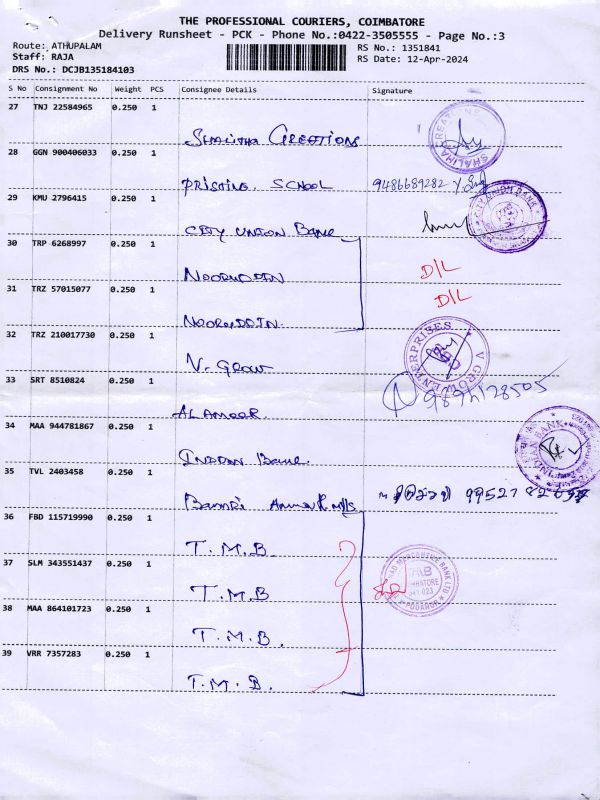 THE PROFESSIONAL COURIERS, COIMBATORE
Delivery Runsheet - PCK - Phone No.:0422-3505555 - Page No.:3
Route: ATHUPALAM
Staff: RAJA
DRS No.: DCJB135184103
RS No.: 1351841
RS Date: 12-Apr-2024
S No Consignment No Weight PCS Consignee Details Signature
27 TNJ 22584965 0.250 1
SHALIHA CREATIONS
SHALIHA CREATIONS
28 GGN 900406033 0.250 1
PRISTINE SCHOOL 9486689282
29 KMU 2796415 0.250 1
CITY UNION BANK
CITY UNION BANK
30 TRP 6268997 0.250 1
NOORUDDIN D/L
31 TRZ 57015077 0.250 1
D/L
NOORUDDIN.
32 TRZ 210017730 0.250 1
V. GROW
V GROW ENTERPRISES
33 SRT 8510824 0.250 1
AL AMEER. 9894128505
34 MAA 944781867 0.250 1
INDIAN Bank.
INDIAN BANK
35 TVL 2403458 0.250 1
36 FBD 115719990 0.250 1
T. M. B
37 SLM 343551437 0.250 1
T. M. B
TMB
COIMBATORE
641 023
PODANUR
38 MAA 864101723 0.250 1
T. M. B.
39 VRR 7357283 0.250 1
T. M. B.